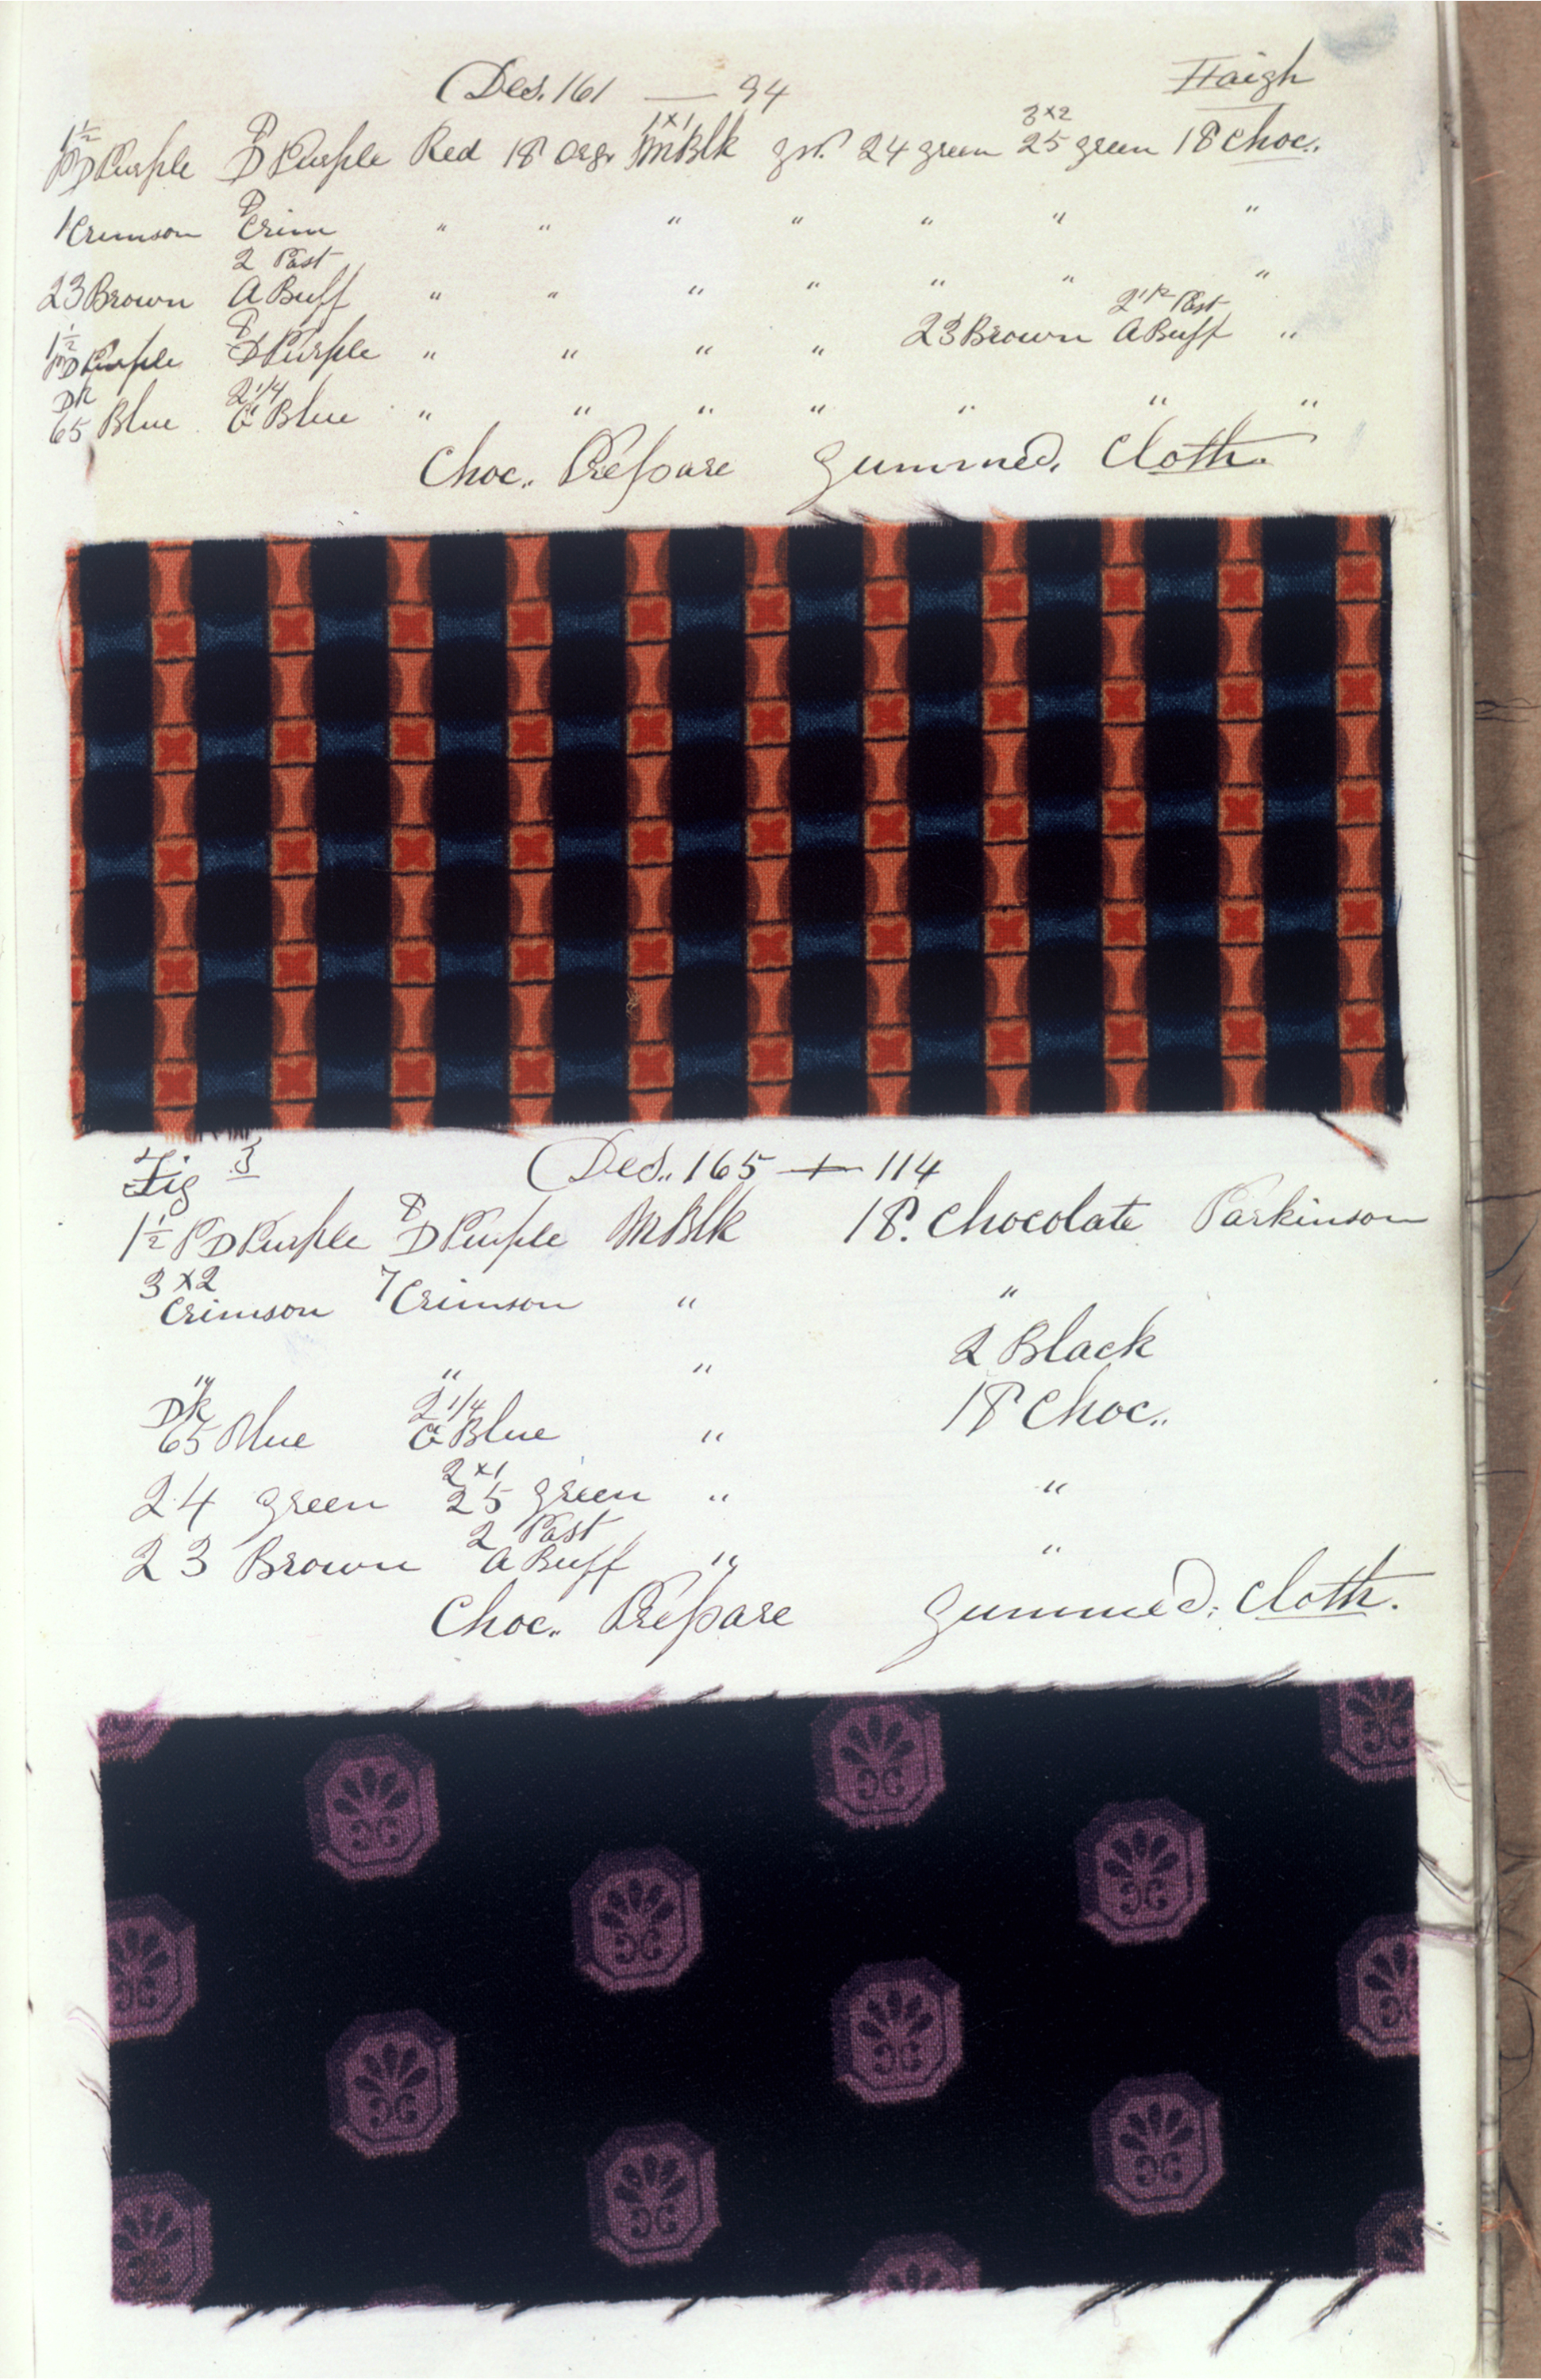 Des. 161 — 94 Haigh
1½ PD Purple 8 D Purple Red 18 Orge 1x1 MBlk 24 green 3x2 25 green 18 Choc.
1 Crimson 8 Crim " " " " " " "
23 Brown 2 Past A Buff " " " " " " "
1½ PD Purple 8 D Purple " " " " 23 Brown 2 1/2 Past A Buff "
DK 65 Blue 2 1/4 G Blue " " " " " " "
Choc. Prepare Gummed. Cloth.
Fig 3 Des.. 165 — 114
1½ PD Purple 8 D Purple MBlk 18. Chocolate Parkinson
3x2 Crimson 7 Crimson " "
" " " 2 Black
DK 65 Blue 2 1/4 G Blue " 18 Choc..
24 green 2x1 25 green " "
23 Brown 2 Past A Buff " "
Choc. Prepare Gummed. Cloth.